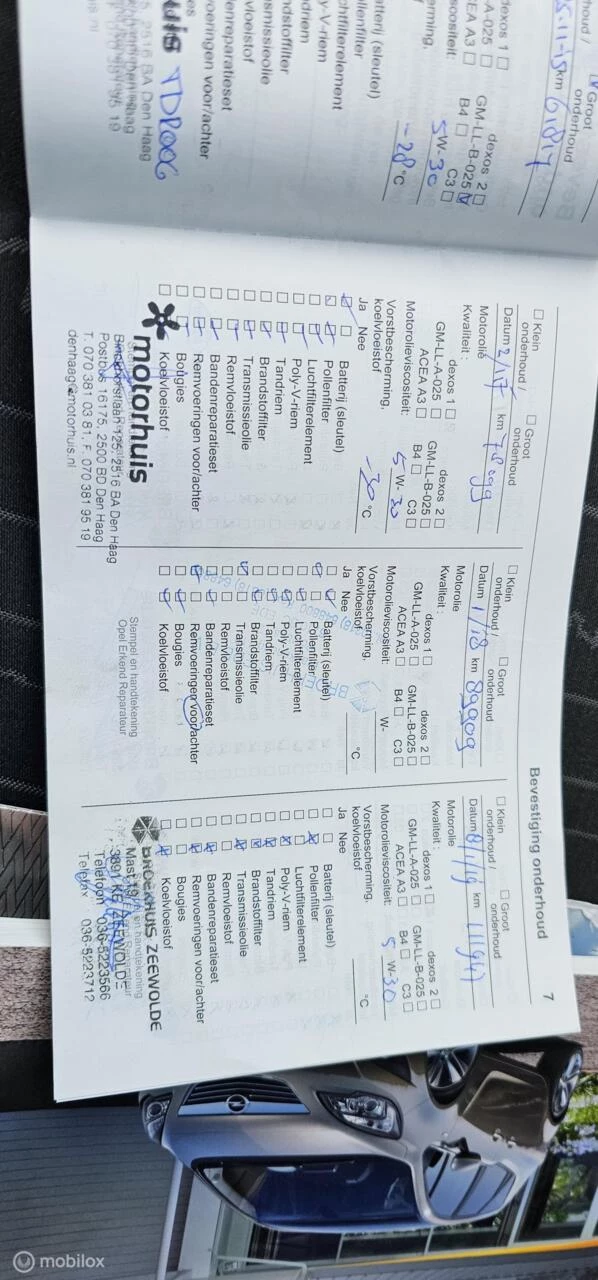 Bevestiging onderhoud
7
Groot
onderhoud
km 61817
dexos 1 dexos 2
A-025 GM-LL-B-025
ACEA A3 B4 C3
5W-30
-28 °C
Batterij (sleutel)
Poly-V-riem
TDPOOC
2516 BA Den Haag
Klein
onderhoud /
Groot
onderhoud
Datum 2/117 km 78099
Motorolie
Kwaliteit :
dexos 1 dexos 2
GM-LL-A-025 GM-LL-B-025
ACEA A3 B4 C3
Motorolieviscositeit: 5 W-30
Vorstbescherming,
koelvloeistof -30 °C
Ja Nee
Batterij (sleutel)
Pollenfilter
Luchtfilterelement
Poly-V-riem
Tandriem
Brandstoffilter
Transmissieolie
Remvloeistof
Bandenreparatieset
Remvoeringen voor/achter
Bougies
Koelvloeistof
motorhuis
Binckhorstlaan 125, 2516 BA Den Haag
Postbus 16175, 2500 BD Den Haag
T. 070 381 03 81, F. 070 381 95 19
denhaag@motorhuis.nl
Klein
onderhoud /
Groot
onderhoud
Datum 1/18 km 89909
Motorolie
Kwaliteit :
dexos 1 dexos 2
GM-LL-A-025 GM-LL-B-025
ACEA A3 B4 C3
Motorolieviscositeit: W-
Vorstbescherming,
koelvloeistof °C
Ja Nee
Batterij (sleutel)
Pollenfilter
Luchtfilterelement
Poly-V-riem
Tandriem
Brandstoffilter
Transmissieolie
Remvloeistof
Bandenreparatieset
Remvoeringen voor/achter
Bougies
Koelvloeistof
Stempel en handtekening
Opel Erkend Reparateur
Klein
onderhoud /
Groot
onderhoud
Datum 8/1/19 km 111947
Motorolie
Kwaliteit :
dexos 1 dexos 2
GM-LL-A-025 GM-LL-B-025
ACEA A3 B4 C3
Motorolieviscositeit: 5 W-30
Vorstbescherming,
koelvloeistof °C
Ja Nee
Batterij (sleutel)
Pollenfilter
Luchtfilterelement
Poly-V-riem
Tandriem
Brandstoffilter
Transmissieolie
Remvloeistof
Bandenreparatieset
Remvoeringen voor/achter
Bougies
Koelvloeistof
BROEKHUIS ZEEWOLDE
3891 KE ZEEWOLDE
Telefoon 036-5223566
Telefax 036-5223712
mobilox